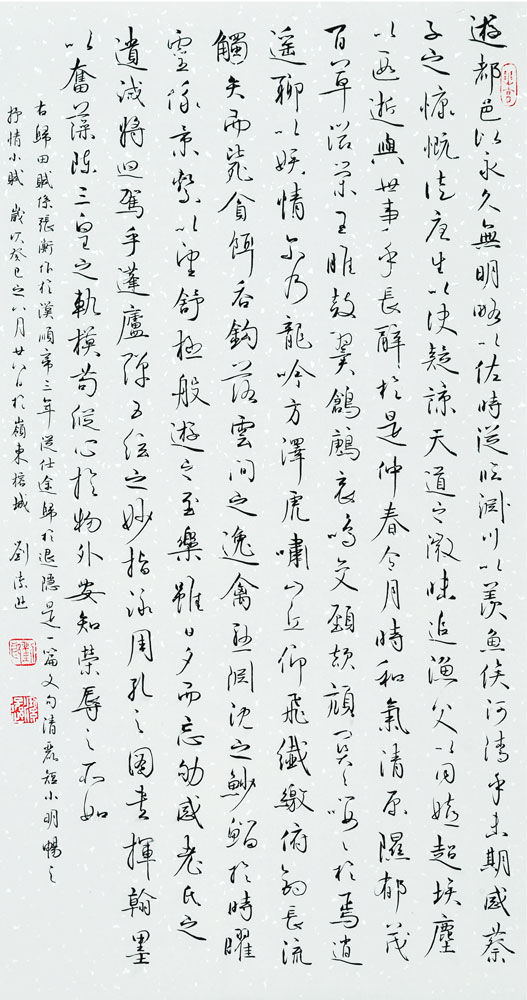 遊都邑以永久無明略以佐時徒臨淵川以羡魚俟河清乎未期感蔡
子之慷慨從唐生以決疑諒天道之微昧追漁父以同嬉超埃塵
以遐逝與世事乎長辭於是仲春令月時和氣清原隰郁茂
百草滋榮王雎鼓翼鶬鶊哀鳴交頸頡頏関々嚶々於焉逍
遥聊以娱情爾乃龍吟方澤虎嘯山丘仰飛纖繳俯釣長流
觸矢而斃貪餌吞鈎落雲間之逸禽懸淵沈之魦鰡於時曜
靈俄景繫以望舒極般遊之至樂雖日夕而忘劬感老氏之
遺誡將迴駕乎蓬廬彈五絃之妙指詠周孔之圖書揮翰墨
以奮藻陳三皇之軌模苟縱心於物外安知榮辱之所如
右歸田賦係張衡作於漢順帝三年從仕途歸於退隱是一篇文句清麗短小明暢之
抒情小賦 歲次癸巳之八月廿八日於嶺東榕城 劉